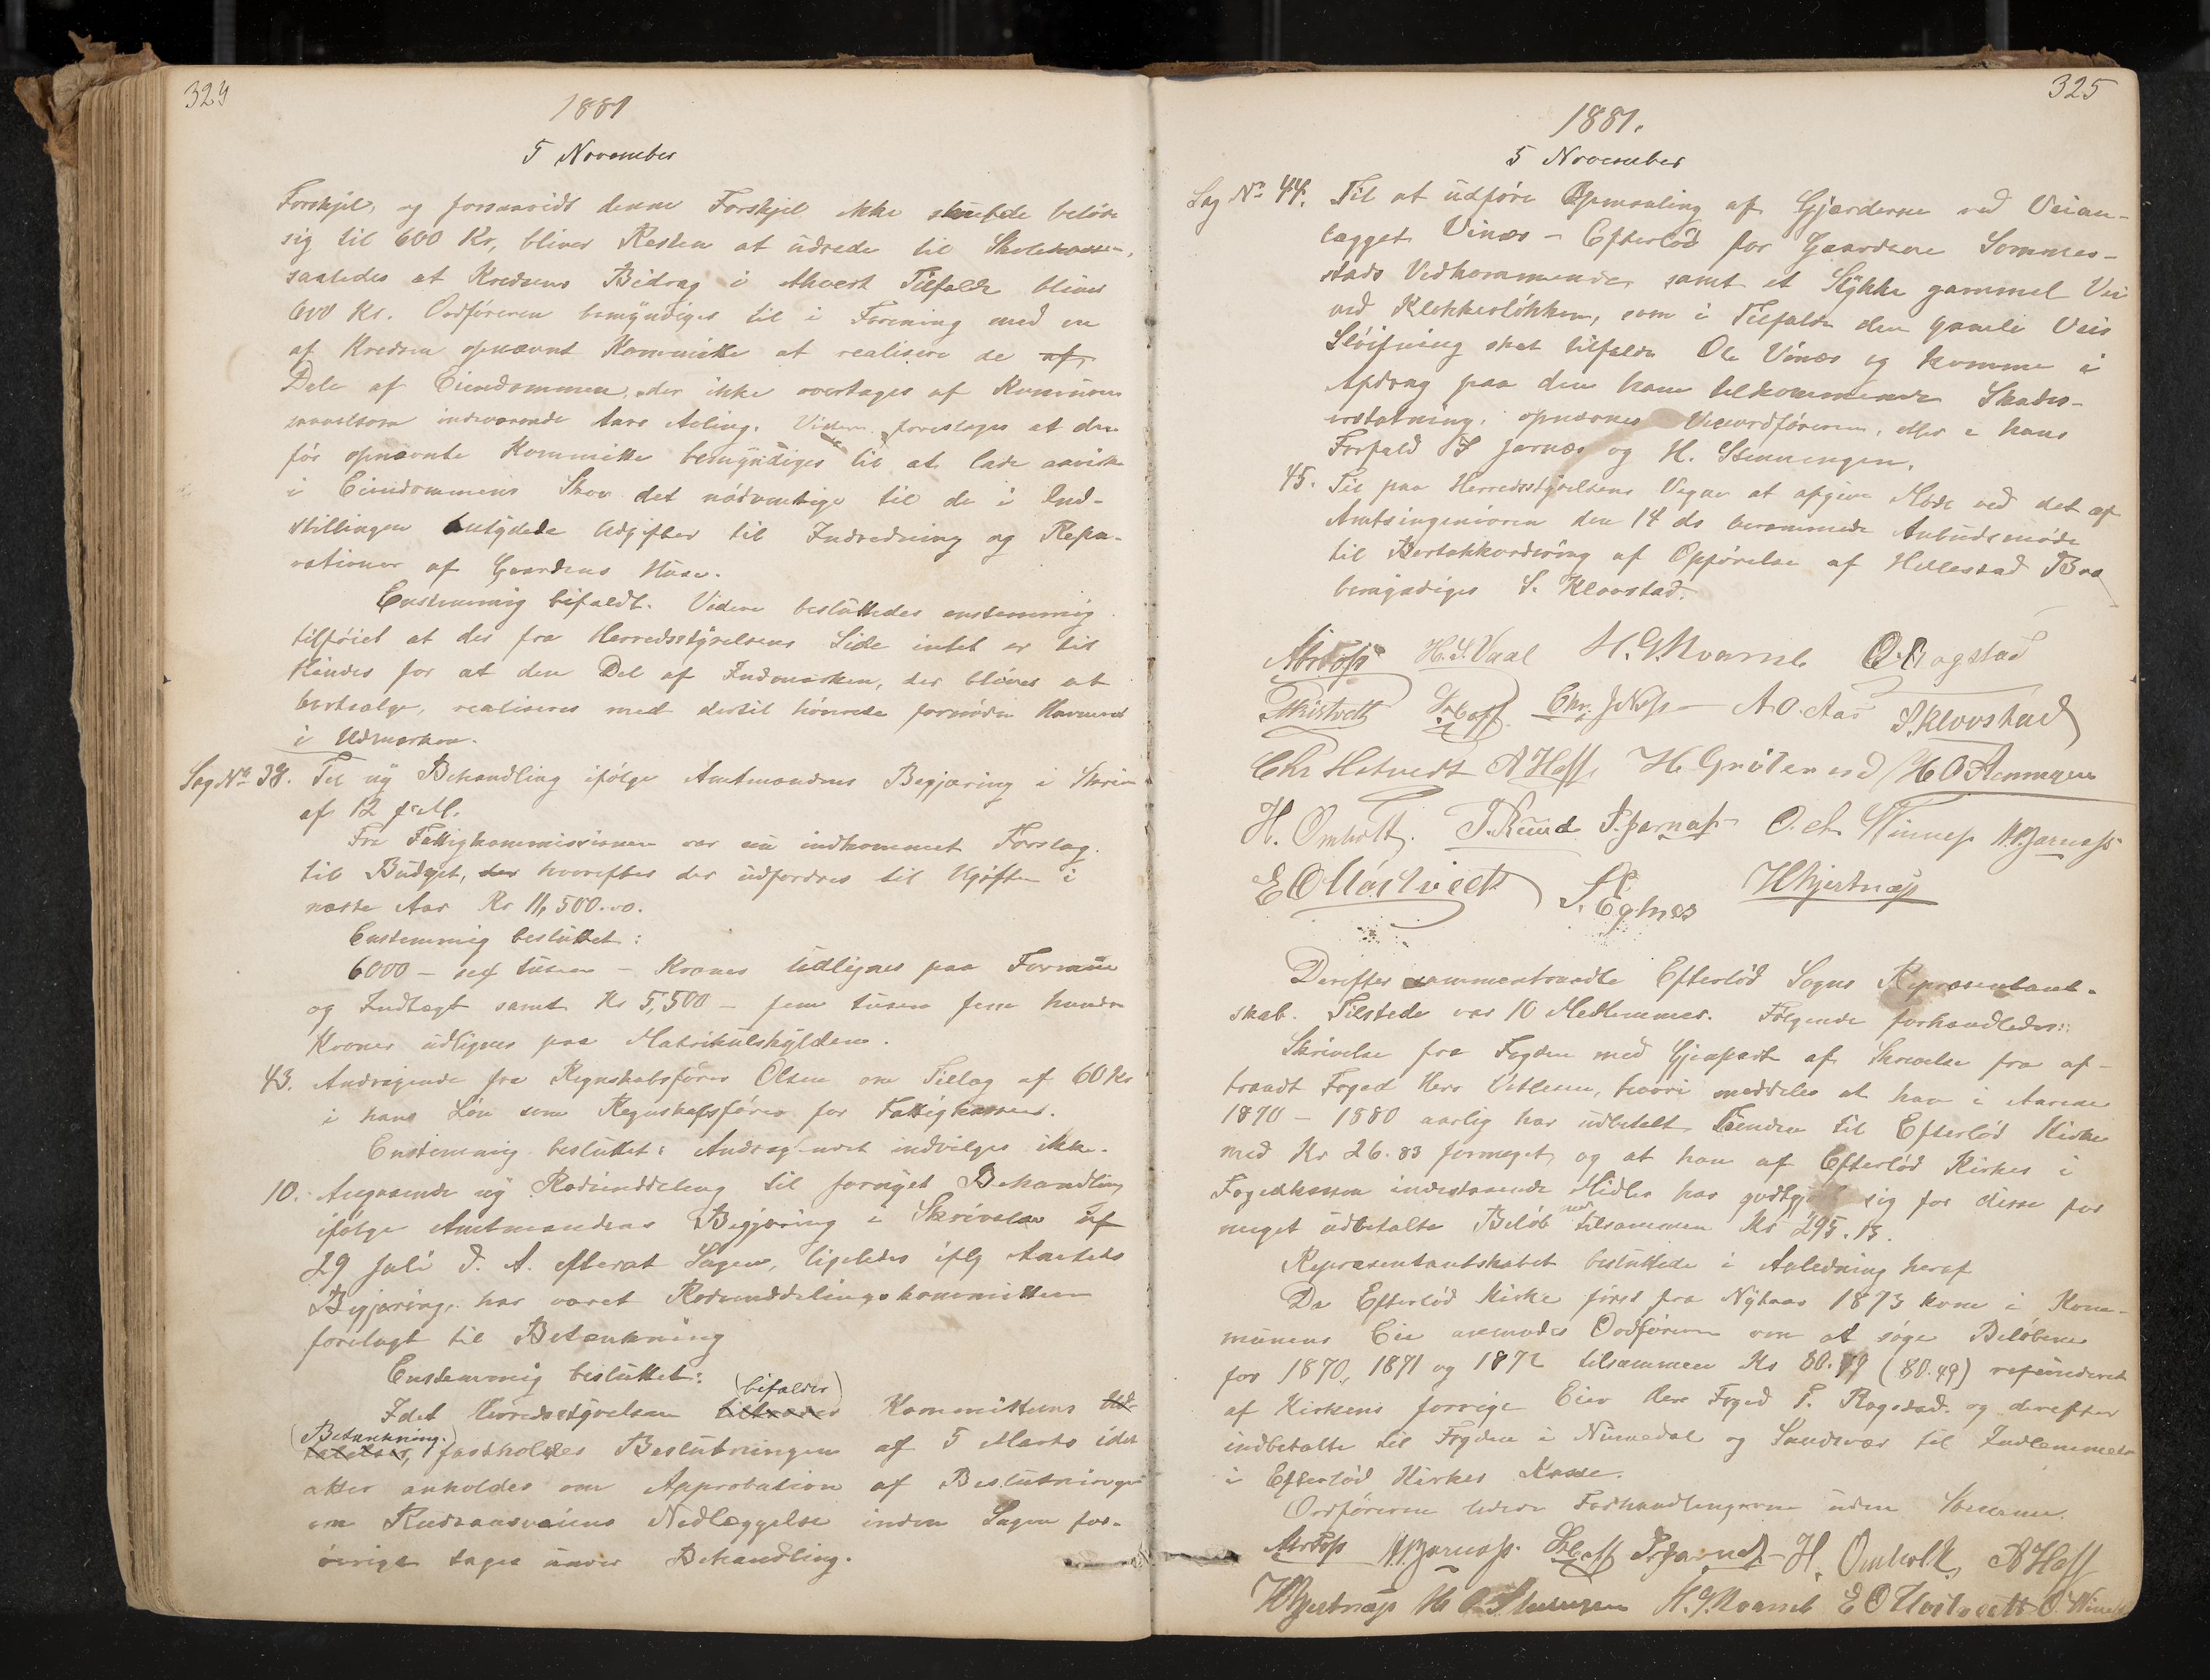 324
1881
5 November
Forskjel, og forsaavidt denne Forskjel ikke skulde beløbe
sig til 600 Kr, bliver Resten at udrede til Skolekassen,
saaledes at Kredsens Bidrag i ethvert Tilfælde bliver
600 Kr. Ordføreren bemyndiges til i Forening med en
af Kredsen opnævnt Kommitte at realisere de af
Dele af Eiendommen, der ikke overtages af Kommunen
saavelsom indeværende Aars Avling. Videre foreslages at den
før opnævnte Kommitte bemyndiges til at lade anvise
i Eiendommens Skov det nødvendige til de i Ind-
stillingen antydede Udgifter til Indredning og Repa-
rationer af Gaardens Huse.
Enstemmig bifaldt. Videre besluttedes enstemmig
tilføiet at der fra Herredsstyrelsens Side intet er til
Hinder for at den Del af Indmarken, der bliver at
bortsælge, realiseres med dertil hørende fornøden Havnered
i Udmarken.
Sag No 38. Til ny Behandling ifølge Amtmandens Begjæring i Skriv
af 12 f. M.
Fra Fattigkommissionen var nu indkommet Forslag
til Budget, der hvorefter der udfordres til Udgifter i
næste Aar Kr 11,500.00.
Enstemmig besluttet:
6000 – sex tusen – Kroner udlignes paa Formue
og Indtægt samt Kr 5,500 – fem tusen fem hundre
Kroner udlignes paa Matrikulskylden.
43. Andragende fra Regnskabsfører Olsen om Tillæg af 60 Kr
i hans Løn som Regnskabsfører for Fattigkassen.
Enstemmig besluttet: Andragendet indvilges ikke.
10. Angaaende ny Rodeinddeling til fornyet Behandling
ifølge Amtmandens Begjæring i Skrivelse af
29 Juli d. A. efterat Sagen, ligeledes iflg Amtets
Begjæring, har været Rodeinddelingskommitteen
forelagt til Betænkning
Enstemmig besluttet:
(bifalder)
Idet Herredsstyrelsen tiltræder Kommitteens Ud-
(Betænkning.)
talelse, fastholdes Beslutningen af 5 Marts idet
atter anholdes om Approbation af Beslutningen
om Nedlæggelse inden Sagen for-
øvrigt tages under Behandling.
325
1881.
5 November
Sag No 44. Til at udføre Opmaaling af Gjærderne ved Veian-
lægget Vinæs – Efteløt for Gaardene Sommer-
stads Vedkommende, samt et Stykke gammel Vei
ved Klokkerløkken, som i Tilfælde den gamle Veis
Sløifning skal tilfalde Ole Vinæs og komme i
Afdrag paa den ham tilkommende Skades-
erstatning, opnævnes Viceordføreren, eller i hans
Forfald Jarnæs og H. Stenningen.
45. Til paa Herredsstyrelsens Vegne at afgive Møde ved det af
Amtsingeniøren den 14 ds berammede Anbudsmøde
til Bortakkordering af Opførelse af Hellestad Bro
bemyndiges S. Klovstad.
H. S. Vaal H. G. Kvarnel O. Bagstad
Chr. J. A. O. Aas S. Klovstad
Chr Hotvedt A Hoff H. H O Stenningen
H. Omholt. T. Ruud O. A. Vinnes
E O Hvitvedt
Derefter sammentraadte Efteløt Sogns Repræsentant-
skab. Tilstede var 10 Medlemmer. Følgende forhandledes:
Skrivelse fra Fogden med Gjenpart af Skrivelse fra af-
traadt Foged Herr Vetlesen, hvori meddeles at han i Aarene
1870 – 1880 aarlig har udbetalt Tienden til Efteløt Kirke
med Kr 26.83 formeget, og at han af Efteløt Kirkes i
Fogedkassen indestaaende Midler har godtgjort sig for disse for
meget udbetalte Beløb med tilsammen Kr 295.13.
Repræsentantskabet besluttede i Anledning heraf
Da Efteløt Kirke først fra Nytaar 1873 kom i Kom-
munens Eie anmodes Ordføreren om at søge Beløbene
for 1870, 1871 og 1872 tilsammen Kr 80.49 (80.49) refunderet
af Kirkens forrige Eier Herr Foged P. Rogstad og derefter
indbetalte til Fogden i Numedal og Sandsvær til Indlemmelse
i Efteløt Kirkes Kasse.
Ordføreren leder Forhandlingerne uden Stemme.
H. Omholt, A Hoff
H O Stenningen H. G. Kvarnel E O Hvitvedt